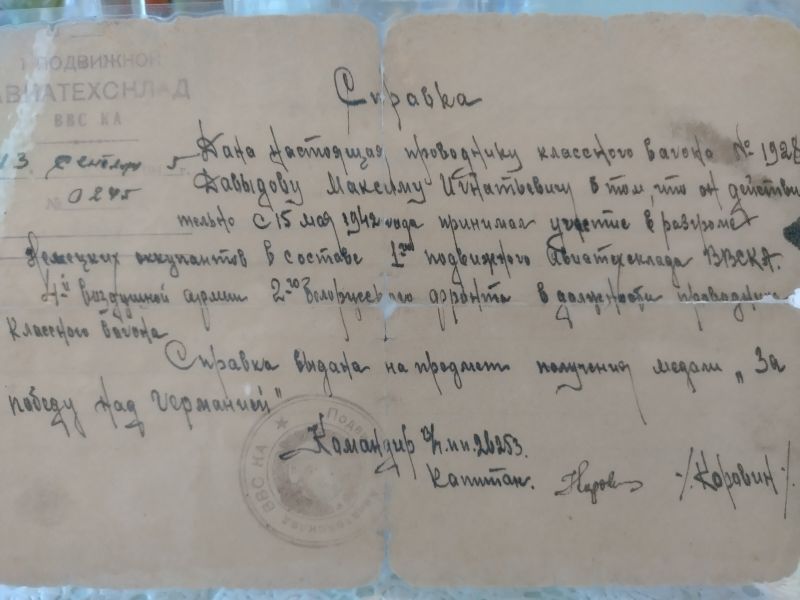 1 ПОДВИЖНОЙ
АВИАТЕХСКЛАД
ВВС КА
13 Сентября 5
№ 0245
Справка
Дана настоящая проводнику классного вагона № 1928
Давыдову Максиму Игнатьевичу в том, что он действи
тельно с 15 мая 1942 года принимал участие в разгроме
Немецких оккупантов в составе 1го подвижного Авиатехсклада ВВСКА.
4й воздушной армии 2-го Белорусского фронта в должности проводника
классного вагона
Справка выдана на предмет получения медали „За
победу над Германией"
Командир в/ч п.п. 26253.
Капитан. /Коровин/.
ВВС КА ★ Подвиж